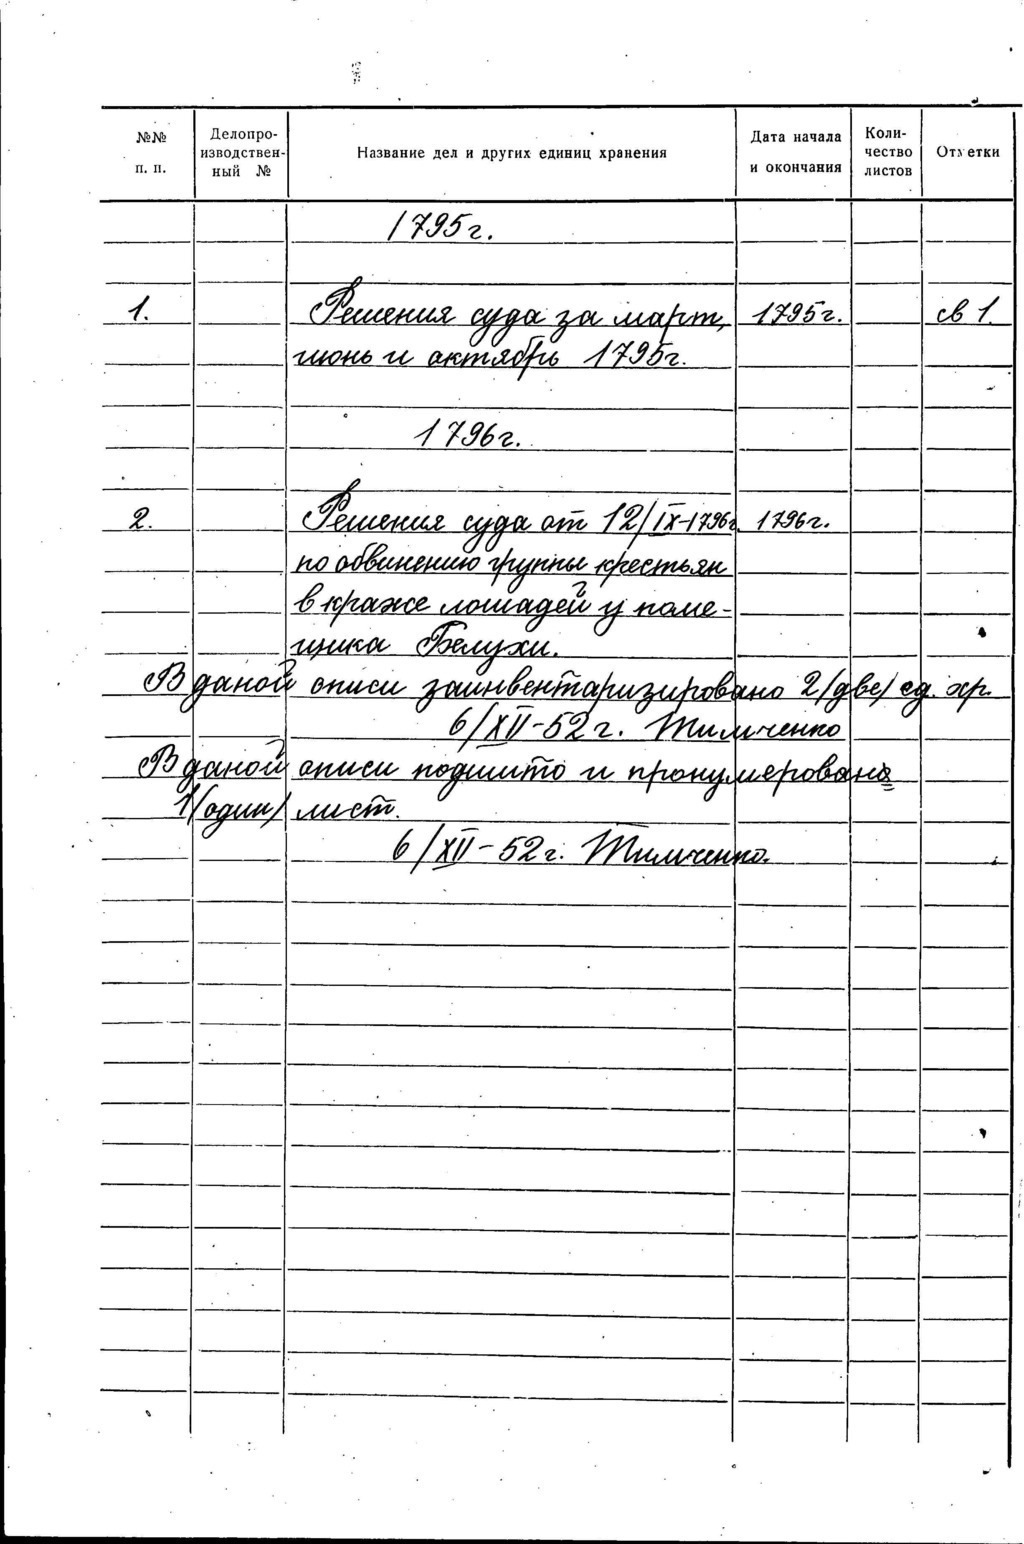 №№ п. п. | Делопро-изводствен-ный № | Название дел и других единиц хранения | Дата начала и окончания | Коли-чество листов | Отметки
1795г.
1. Решения суда за март, 1795г. св 1.
июнь и октябрь 1795г.
1796г.
2. Решения суда от 12/IX-1796г. 1796г.
по обвинению группы крестьян
в краже лошадей у поме-
щика Белухи.
В даной описи заинвентаризировано 2/две/ ед. хр.
6/XII-52г. Тимченко
В даной описи подшито и пронумеровано
1/один/ лист.
6/XII-52г. Тимченко.